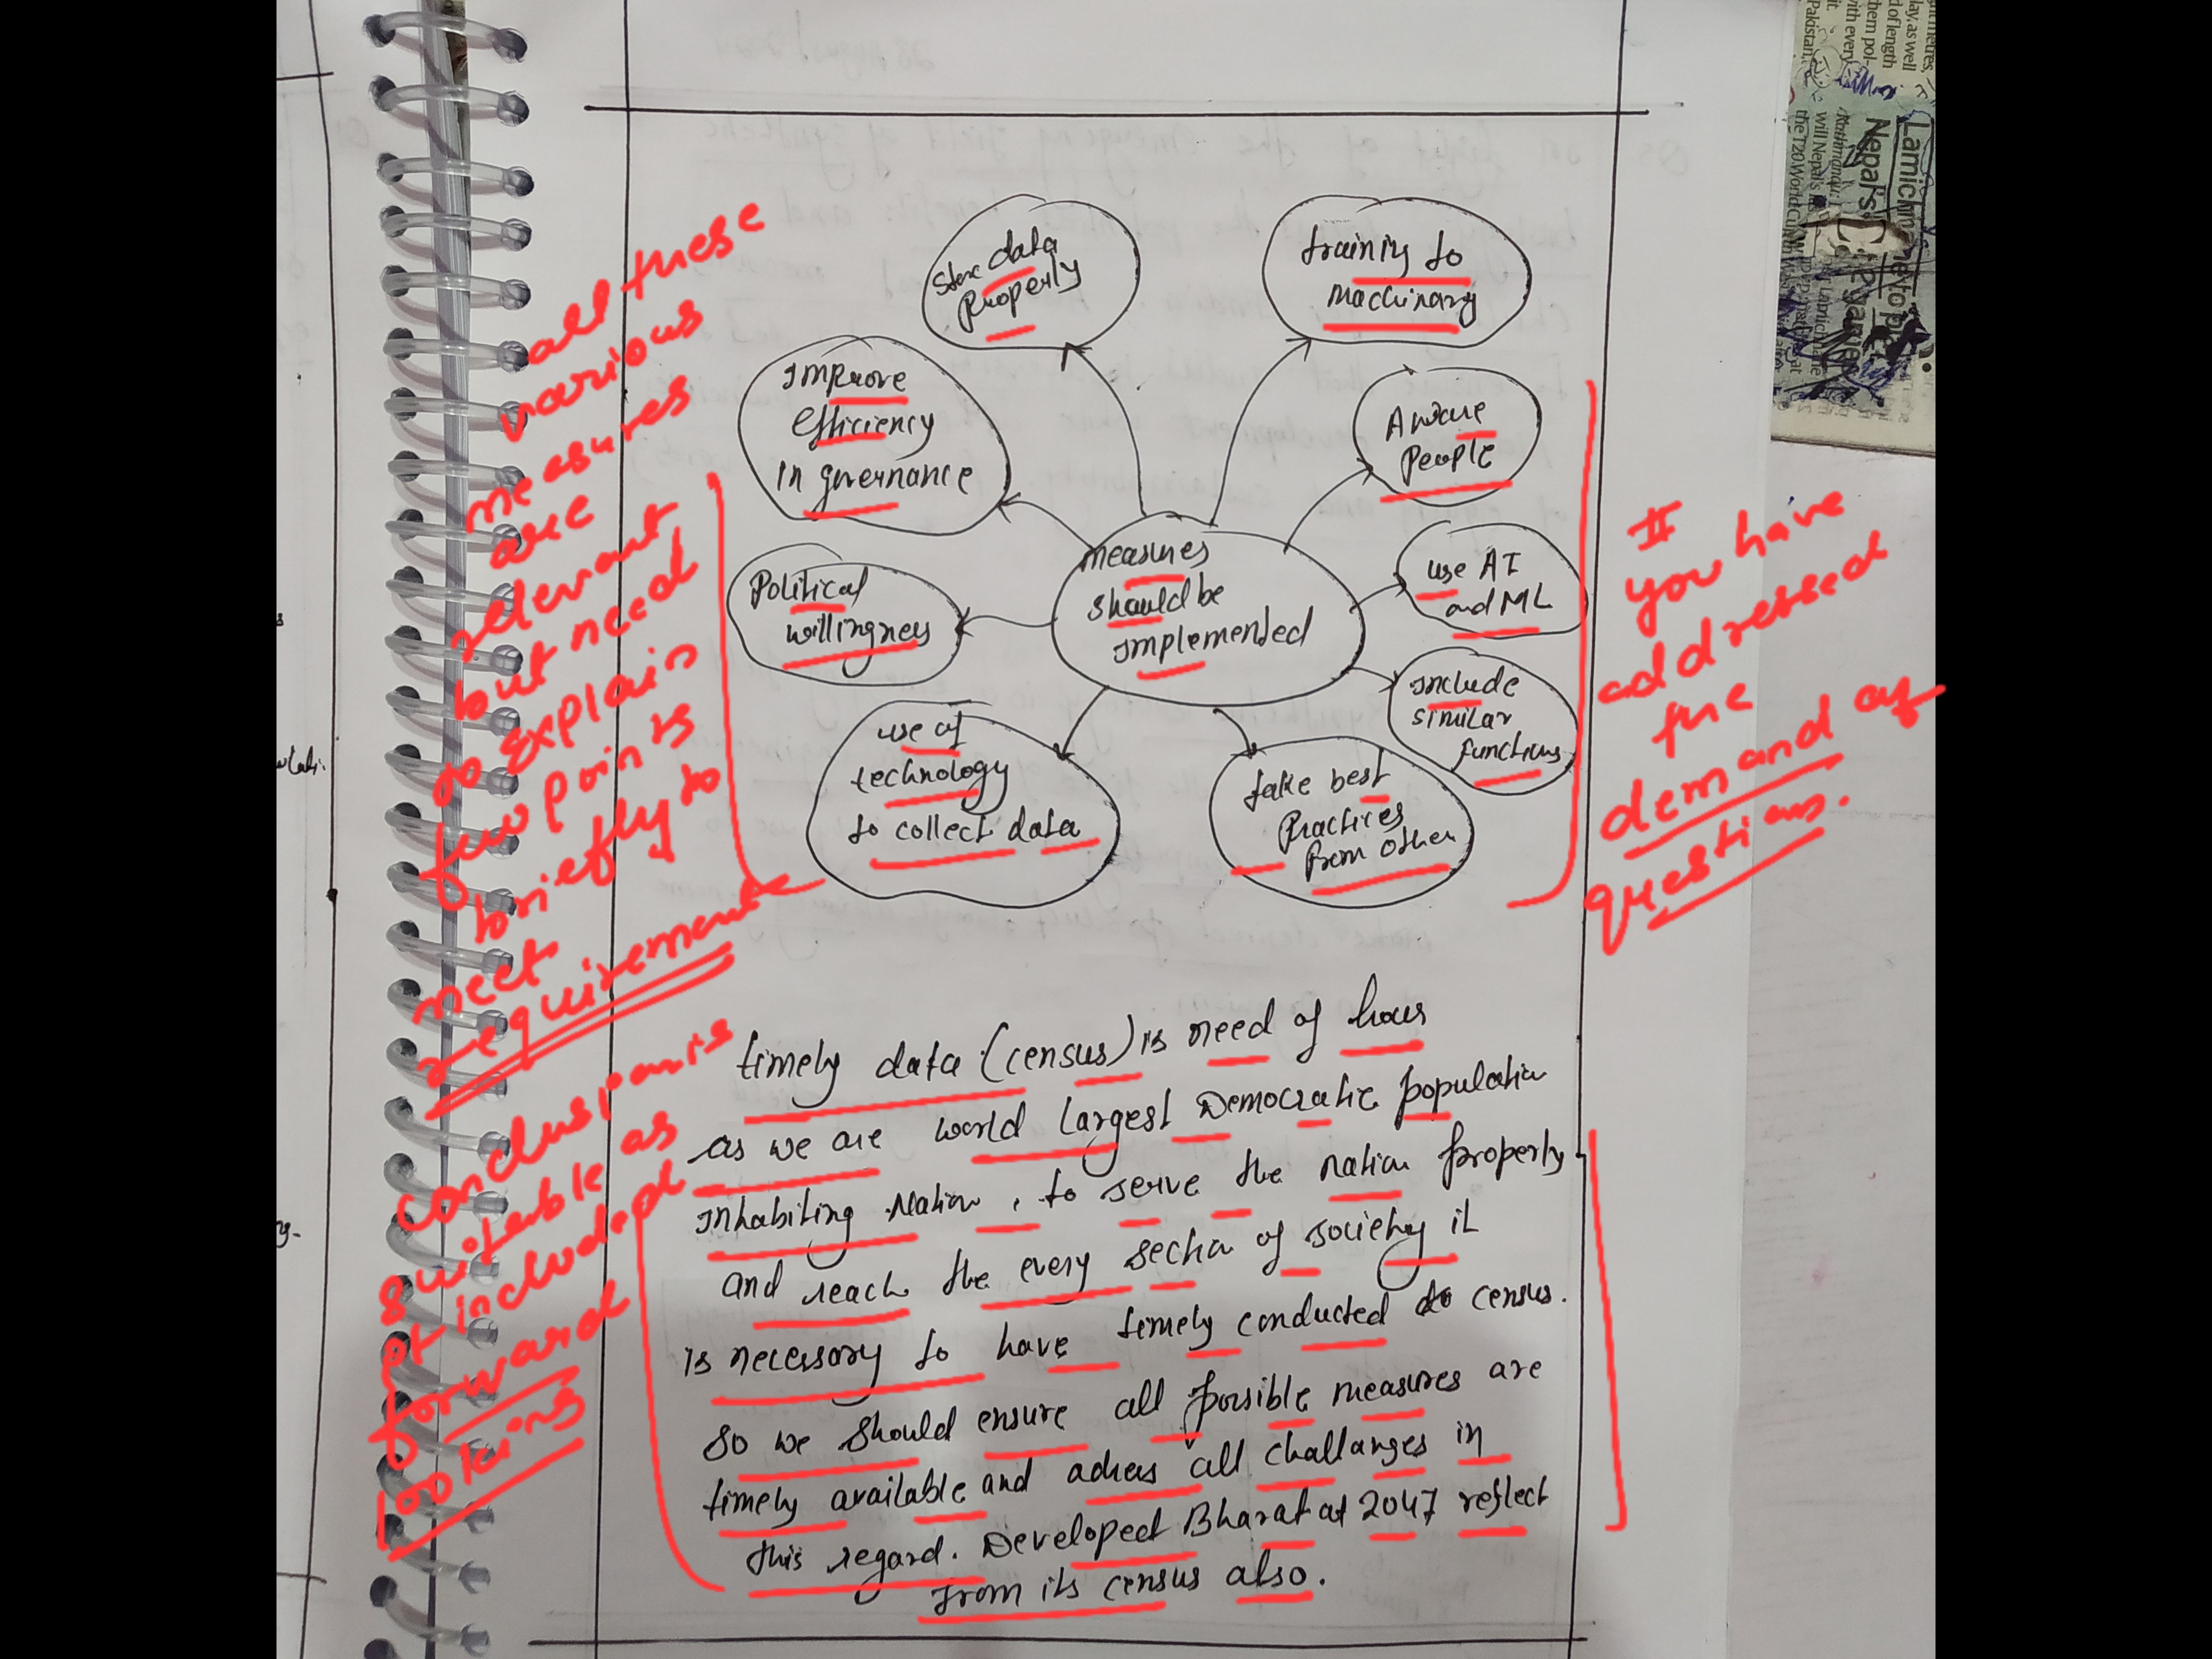 Store data
Properly
training to
Machinary
Improve
Efficiency
in governance
Aware
People
measures
should be
Implemented
use AI
and ML
Political
willingness
Include
similar
functions
use of
technology
to collect data
take best
Practices
from other
timely data (census) is need of hour
as we are world largest Democratic population
Inhabiting Nation, to serve the nation properly
and reach the every section of society it
is necessary to have timely conducted census.
So we should ensure all possible measures are
timely available and adress all challanges in
this regard. Developed Bharat at 2047 reflect
from its census also.
all these
various
measures
are
relevant
but need
to explain
few points
briefly to
meet
requirement
conclusion is
suitable as
it included
forward
looking
If
you have
addressed
the
demand of
questions.
Lamichhane
Nepal's
Kathmandu:
will Nepal's
the T20 World Cup
Pakistan,
with every
them pol-
d of length
lay, as well